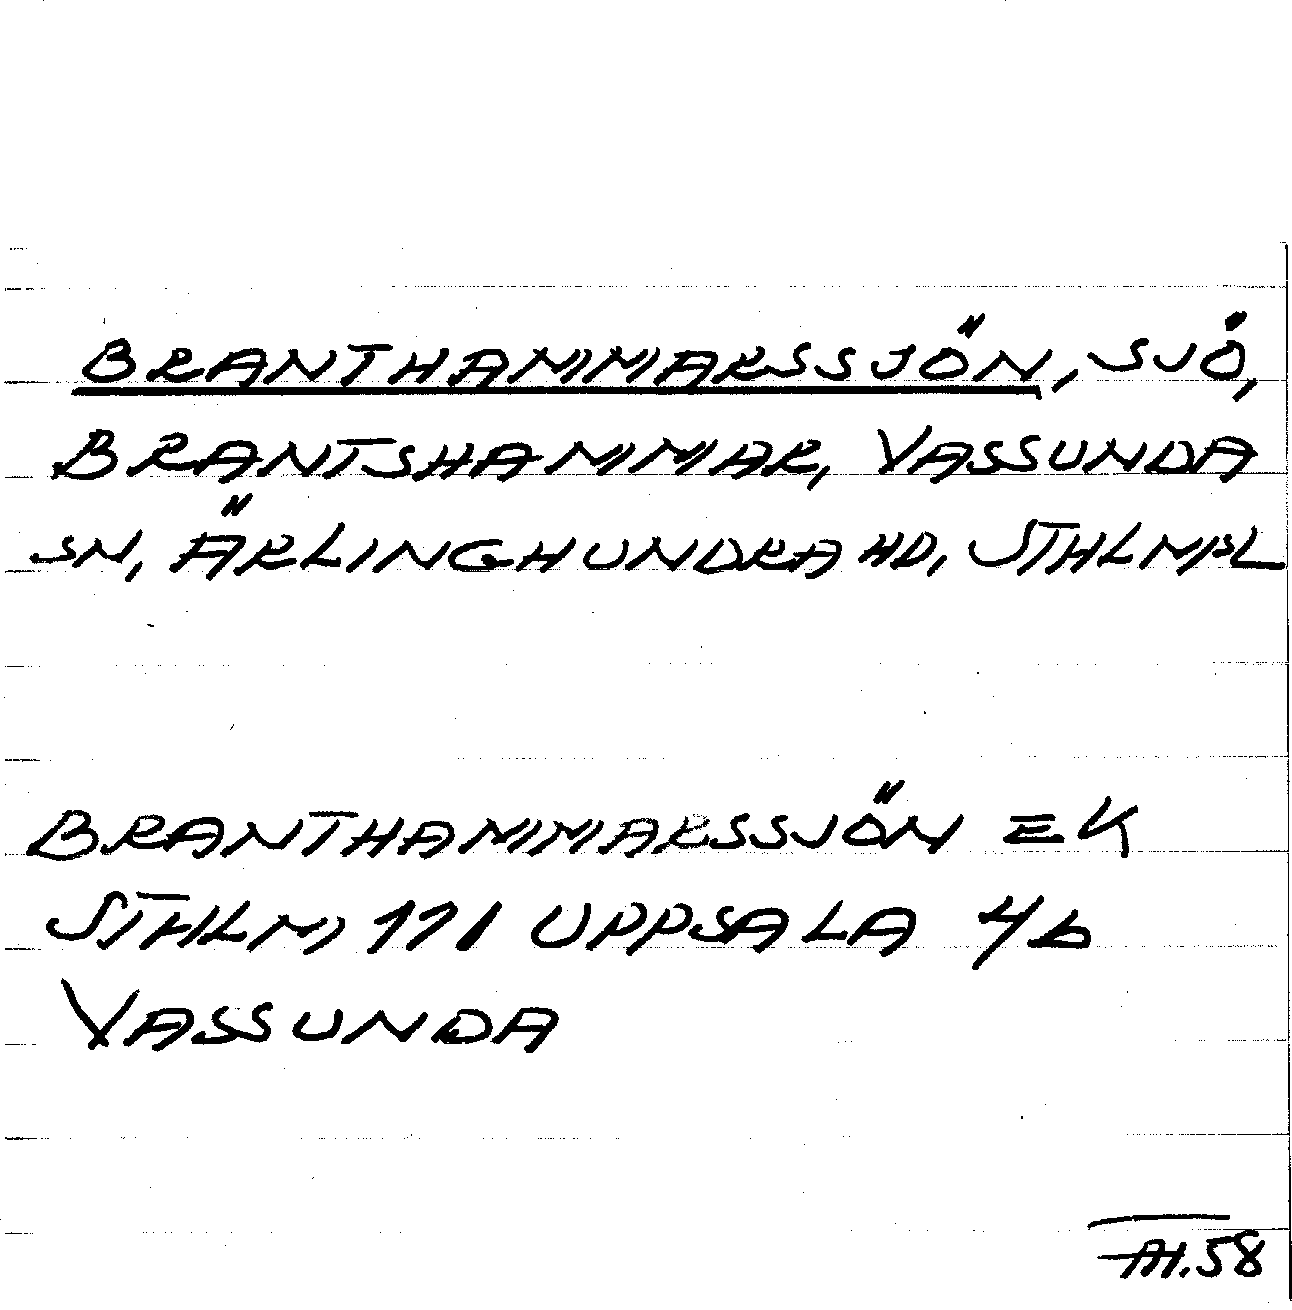 BRANTHAMMARSSJÖN, SJÖ,
BRANTSHAMMAR, VASSUNDA
SN, ÄRLINGHUNDRA HD, STHLMSL
BRANTHAMMARSSJÖN EK
STHLM, 111 UPPSALA 4b
VASSUNDA
AH.58